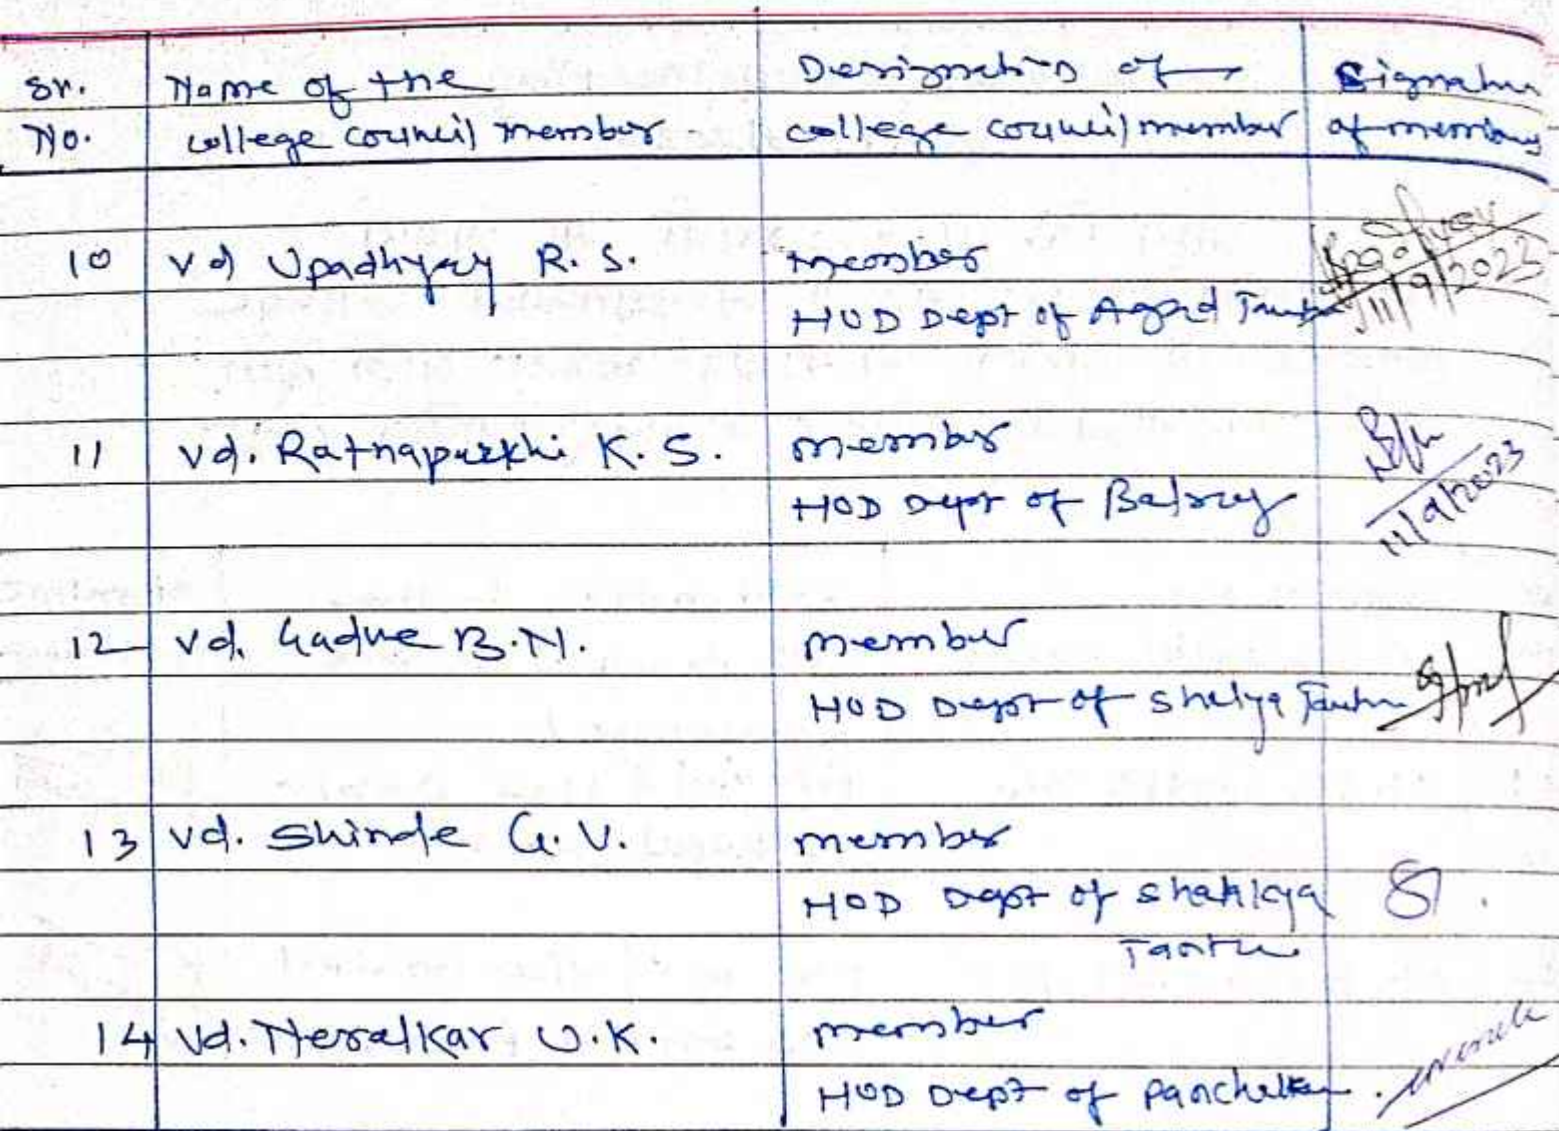 Sr. Name of the Designation of Signature
No. college council member college council member of member
10 Vd Upadhyay R. S. member Upadhyay
HOD Dept of Agad Tantra 11/9/2023
11 Vd. Ratnaparkhi K. S. member
HOD Dept of Balrog 11/9/2023
12 Vd. Gadve B.N. member
HOD Dept of Shalya Tantra
13 Vd. Shinde G. V. member
HOD Dept of Shalkya
Tantra
14 Vd. Neralkar U.K. member
HOD Dept of Panchakarma